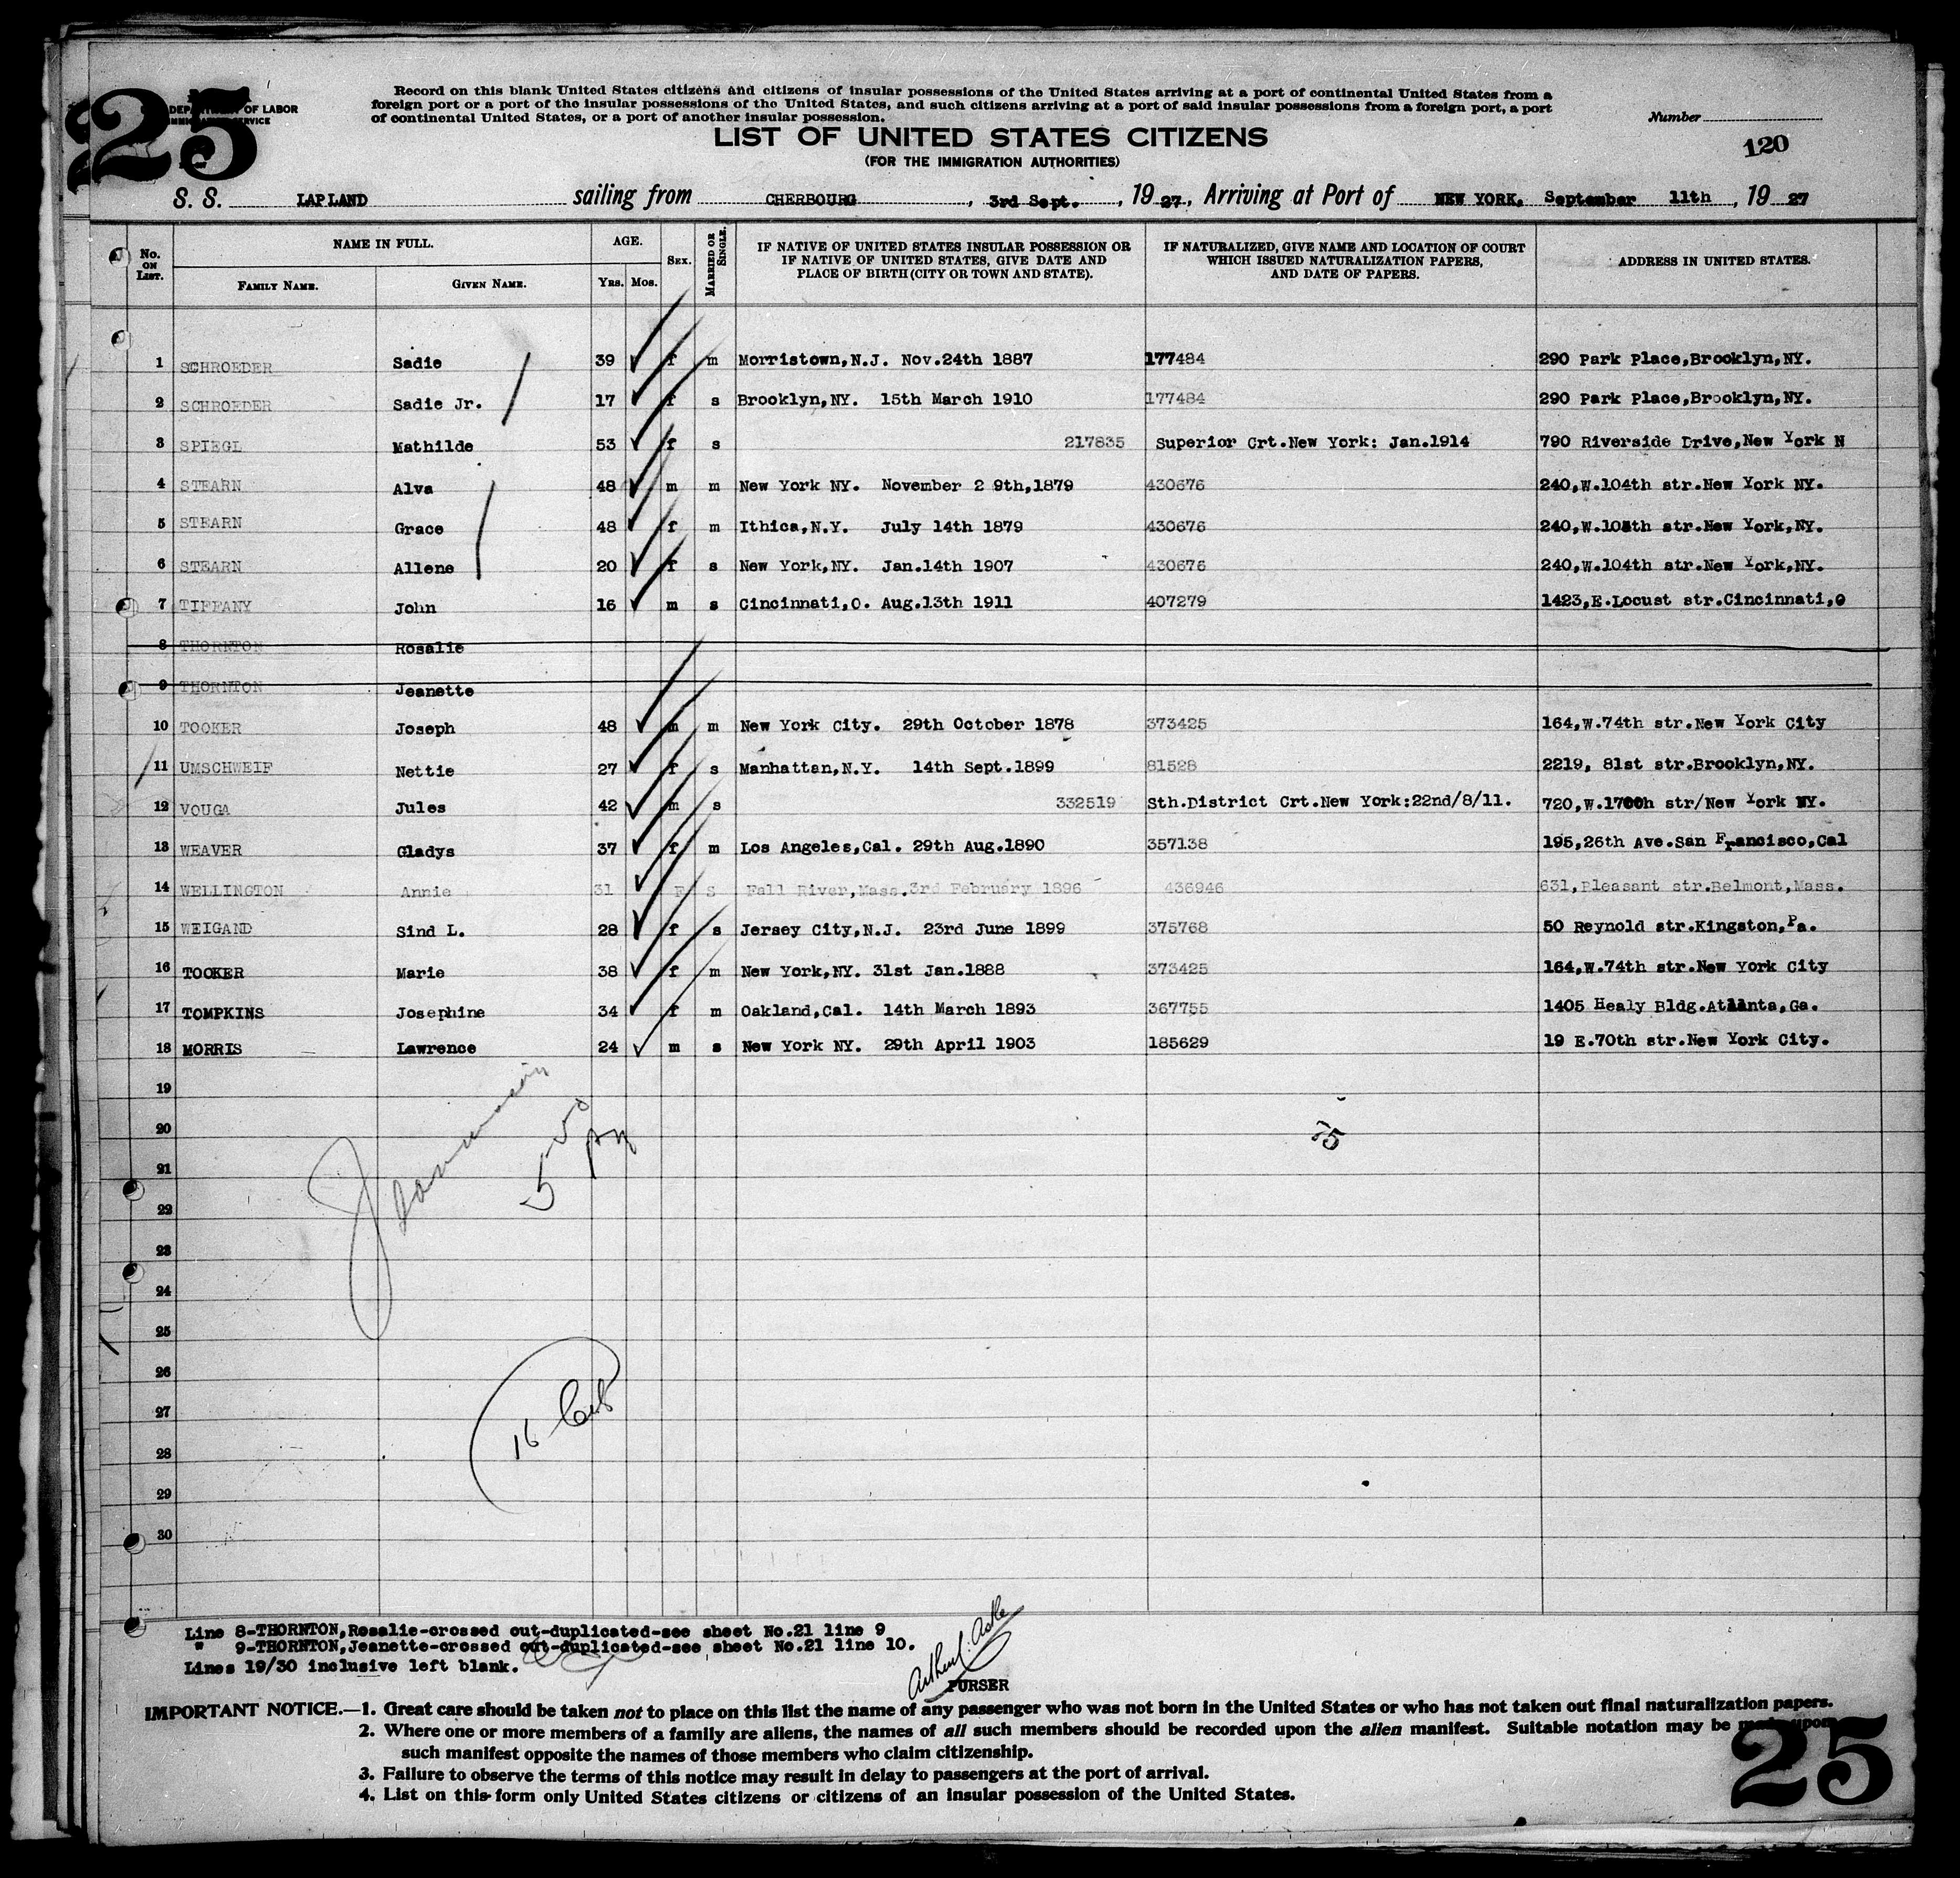 25
DEPARTMENT OF LABOR
IMMIGRATION SERVICE
Record on this blank United States citizens and citizens of insular possessions of the United States arriving at a port of continental United States from a
foreign port or a port of the insular possessions of the United States, and such citizens arriving at a port of said insular possessions from a foreign port, a port
of continental United States, or a port of another insular possession.
Number
LIST OF UNITED STATES CITIZENS
(FOR THE IMMIGRATION AUTHORITIES)
120
S. S. LAPLAND sailing from CHERBOURG, 3rd Sept., 19 27, Arriving at Port of NEW YORK, September 11th, 19 27
No. ON LIST. NAME IN FULL. FAMILY NAME. GIVEN NAME. AGE. YRS. MOS. SEX. MARRIED OR SINGLE. IF NATIVE OF UNITED STATES INSULAR POSSESSION OR IF NATIVE OF UNITED STATES, GIVE DATE AND PLACE OF BIRTH (CITY OR TOWN AND STATE). IF NATURALIZED, GIVE NAME AND LOCATION OF COURT WHICH ISSUED NATURALIZATION PAPERS, AND DATE OF PAPERS. ADDRESS IN UNITED STATES.
1 SCHROEDER Sadie 39 f m Morristown,N.J. Nov.24th 1887 177484 290 Park Place,Brooklyn,NY.
2 SCHROEDER Sadie Jr. 17 f s Brooklyn,NY. 15th March 1910 177484 290 Park Place,Brooklyn,NY.
3 SPIEGL Mathilde 53 f s 217835 Superior Crt.New York: Jan.1914 790 Riverside Drive,New York N
4 STEARN Alva 48 m m New York NY. November 2 9th,1879 430676 240,W.104th str.New York NY.
5 STEARN Grace 48 f m Ithica,N.Y. July 14th 1879 430676 240,W.104th str.New York,NY.
6 STEARN Allene 20 f s New York,NY. Jan.14th 1907 430676 240,W.104th str.New York,NY.
7 TIFFANY John 16 m s Cincinnati,O. Aug.13th 1911 407279 1423,E.Locust str.Cincinnati,O
8 THORNTON Rosalie
9 THORNTON Jeanette
10 TOOKER Joseph 48 m m New York City. 29th October 1878 373425 164,W.74th str.New York City
11 UMSCHWEIF Nettie 27 f s Manhattan,N.Y. 14th Sept.1899 81528 2219, 81st str.Brooklyn,NY.
12 VOUGA Jules 42 m s 332519 Sth.District Crt.New York:22nd/8/11. 720,W.170th str/New York NY.
13 WEAVER Gladys 37 f m Los Angeles,Cal. 29th Aug.1890 357138 195,26th Ave.San Francisco,Cal
14 WELLINGTON Annie 31 F S Fall River,Mass.3rd February 1896 436946 631,Pleasant str.Belmont,Mass.
15 WEIGAND Sind L. 28 f s Jersey City,N.J. 23rd June 1899 375768 50 Reynold str.Kingston,Pa.
16 TOOKER Marie 38 f m New York,NY. 31st Jan.1888 373425 164,W.74th str.New York City
17 TOMPKINS Josephine 34 f m Oakland,Cal. 14th March 1893 367755 1405 Healy Bldg.Atlanta,Ga.
18 MORRIS Lawrence 24 m s New York NY. 29th April 1903 185629 19 E.70th str.New York City.
19
20
21
22
23
24
25
26
27
28
29
30
16
Line 8-THORNTON,Rosalie-crossed out-duplicated-see sheet No.21 line 9
" 9-THORNTON,Jeanette-crossed out-duplicated-see sheet No.21 line 10.
Lines 19/30 inclusive left blank.
PURSER
IMPORTANT NOTICE.—1. Great care should be taken not to place on this list the name of any passenger who was not born in the United States or who has not taken out final naturalization papers.
2. Where one or more members of a family are aliens, the names of all such members should be recorded upon the alien manifest. Suitable notation may be made upon
such manifest opposite the names of those members who claim citizenship.
3. Failure to observe the terms of this notice may result in delay to passengers at the port of arrival.
4. List on this form only United States citizens or citizens of an insular possession of the United States.
25